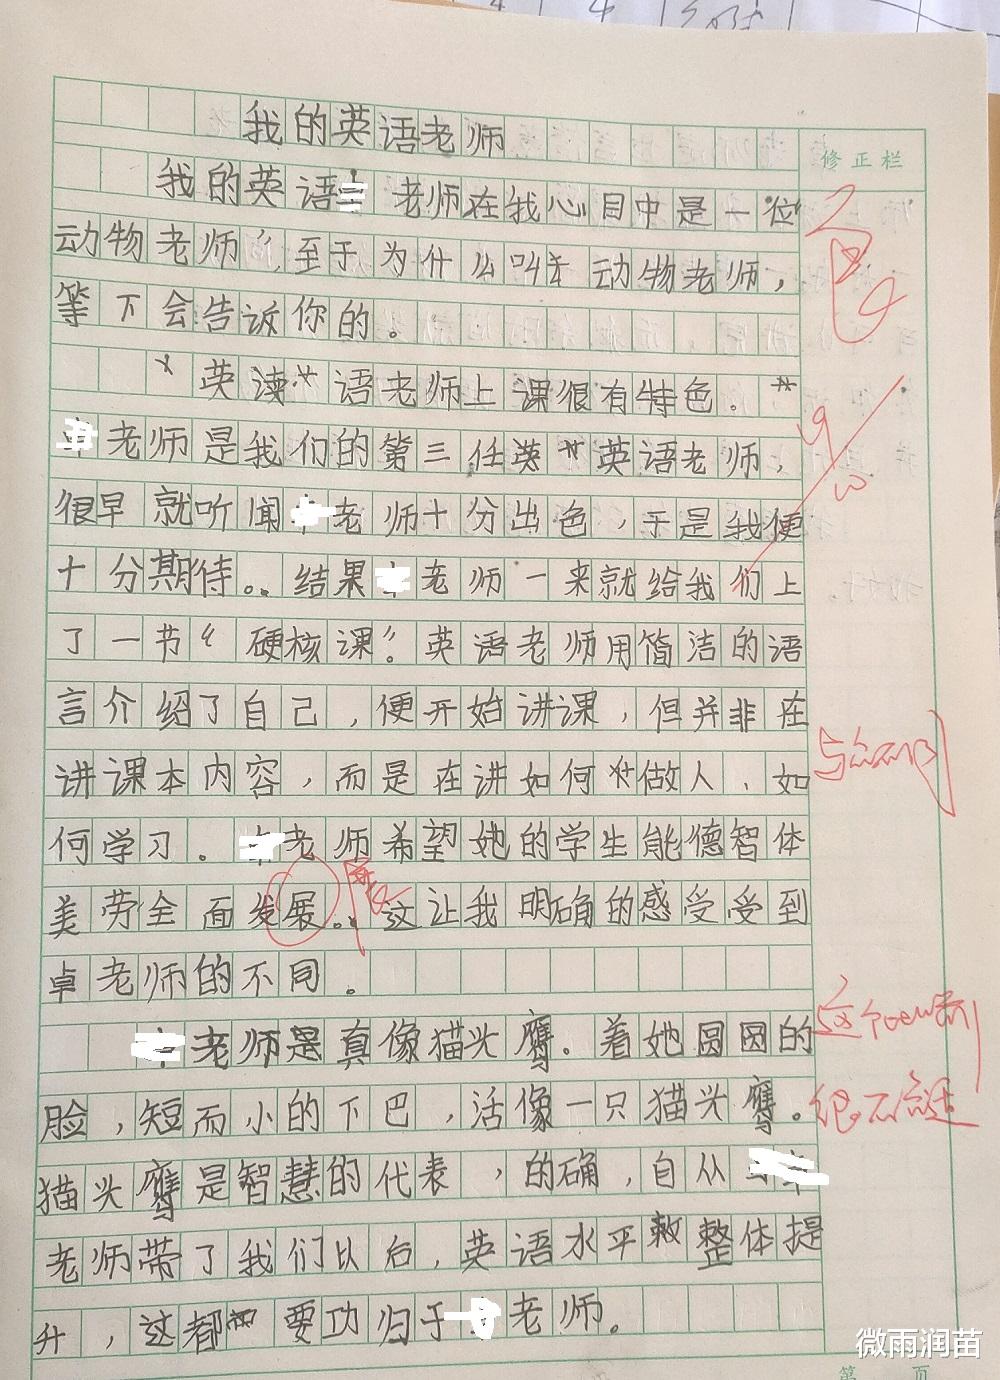 我的英语老师
修正栏
我的英语 老师在我心目中是一位
动物老师",至于为什么叫 动物老师,
等下会告诉你的。
英读 语老师上课很有特色。
老师是我们的第三任英 英语老师,
很早就听闻 老师十分出色,于是我便
十分期待。.结果 老师一来就给我们上
了一节"硬核课"。英语老师用简洁的语
言介绍了自己,便开始讲课,但并非在
讲课本内容,而是在讲如何 做人、如
与众不同
何学习。 老师希望她的学生能德智体
美劳全面发展。这让我明确的感受受到
展
卓老师的不同。
老师是真像猫头鹰.看她圆圆的
这个
脸,短而小的下巴,活像一只猫头鹰。
很不合适
猫头鹰是智慧的代表,的确,自从
老师带了我们以后,英语水平敕整体提
升,这都 要功归于 老师。
第 页
微雨润苗